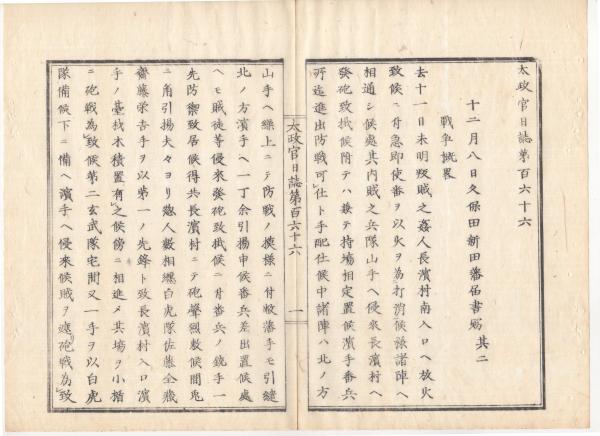 太政官日誌第百六十六
十二月八日久保田新田藩届書寫 其二
戦争概畧
去十一日未明叛賊之姦人長濱村南入口ヘ放火
致候ニ付急即使番ヲ以火ヲ為打消候様諸陣ヘ
相通シ候處其内賊之兵隊山手ヘ侵来長濱村ヘ
發砲致候附テハ兼テ持場相定置候濱手番兵
所迄進出防戦可仕ト手配仕候中諸陣ハ北ノ方
太政官日誌第百六十六 一
山手ヘ繰上ニテ防戦ノ模様ニ付敝藩手モ引纏
北ノ方濱手ヘ一丁余引揚申候番兵差出置候處
ヘモ賊徒等侵来發砲致候ニ付番兵ノ銃手一
先防禦致居候得共長濱村ニテ砲聲烈敷候間兎
ニ角引揚夫々ヨリ惣人數相纏白虎隊佐藤全
齋藤栄吉手ヲ以第一ノ先鋒ト致長濱村入口濱
手ノ臺材木積置有之候傍ニ相進メ其場ヲ小楯
ニ砲戦為致候第二玄武隊宅間又一手ヲ以白虎
隊備候下ニ備ヘ濱手ヘ侵来候賊ヲ應砲戦為致